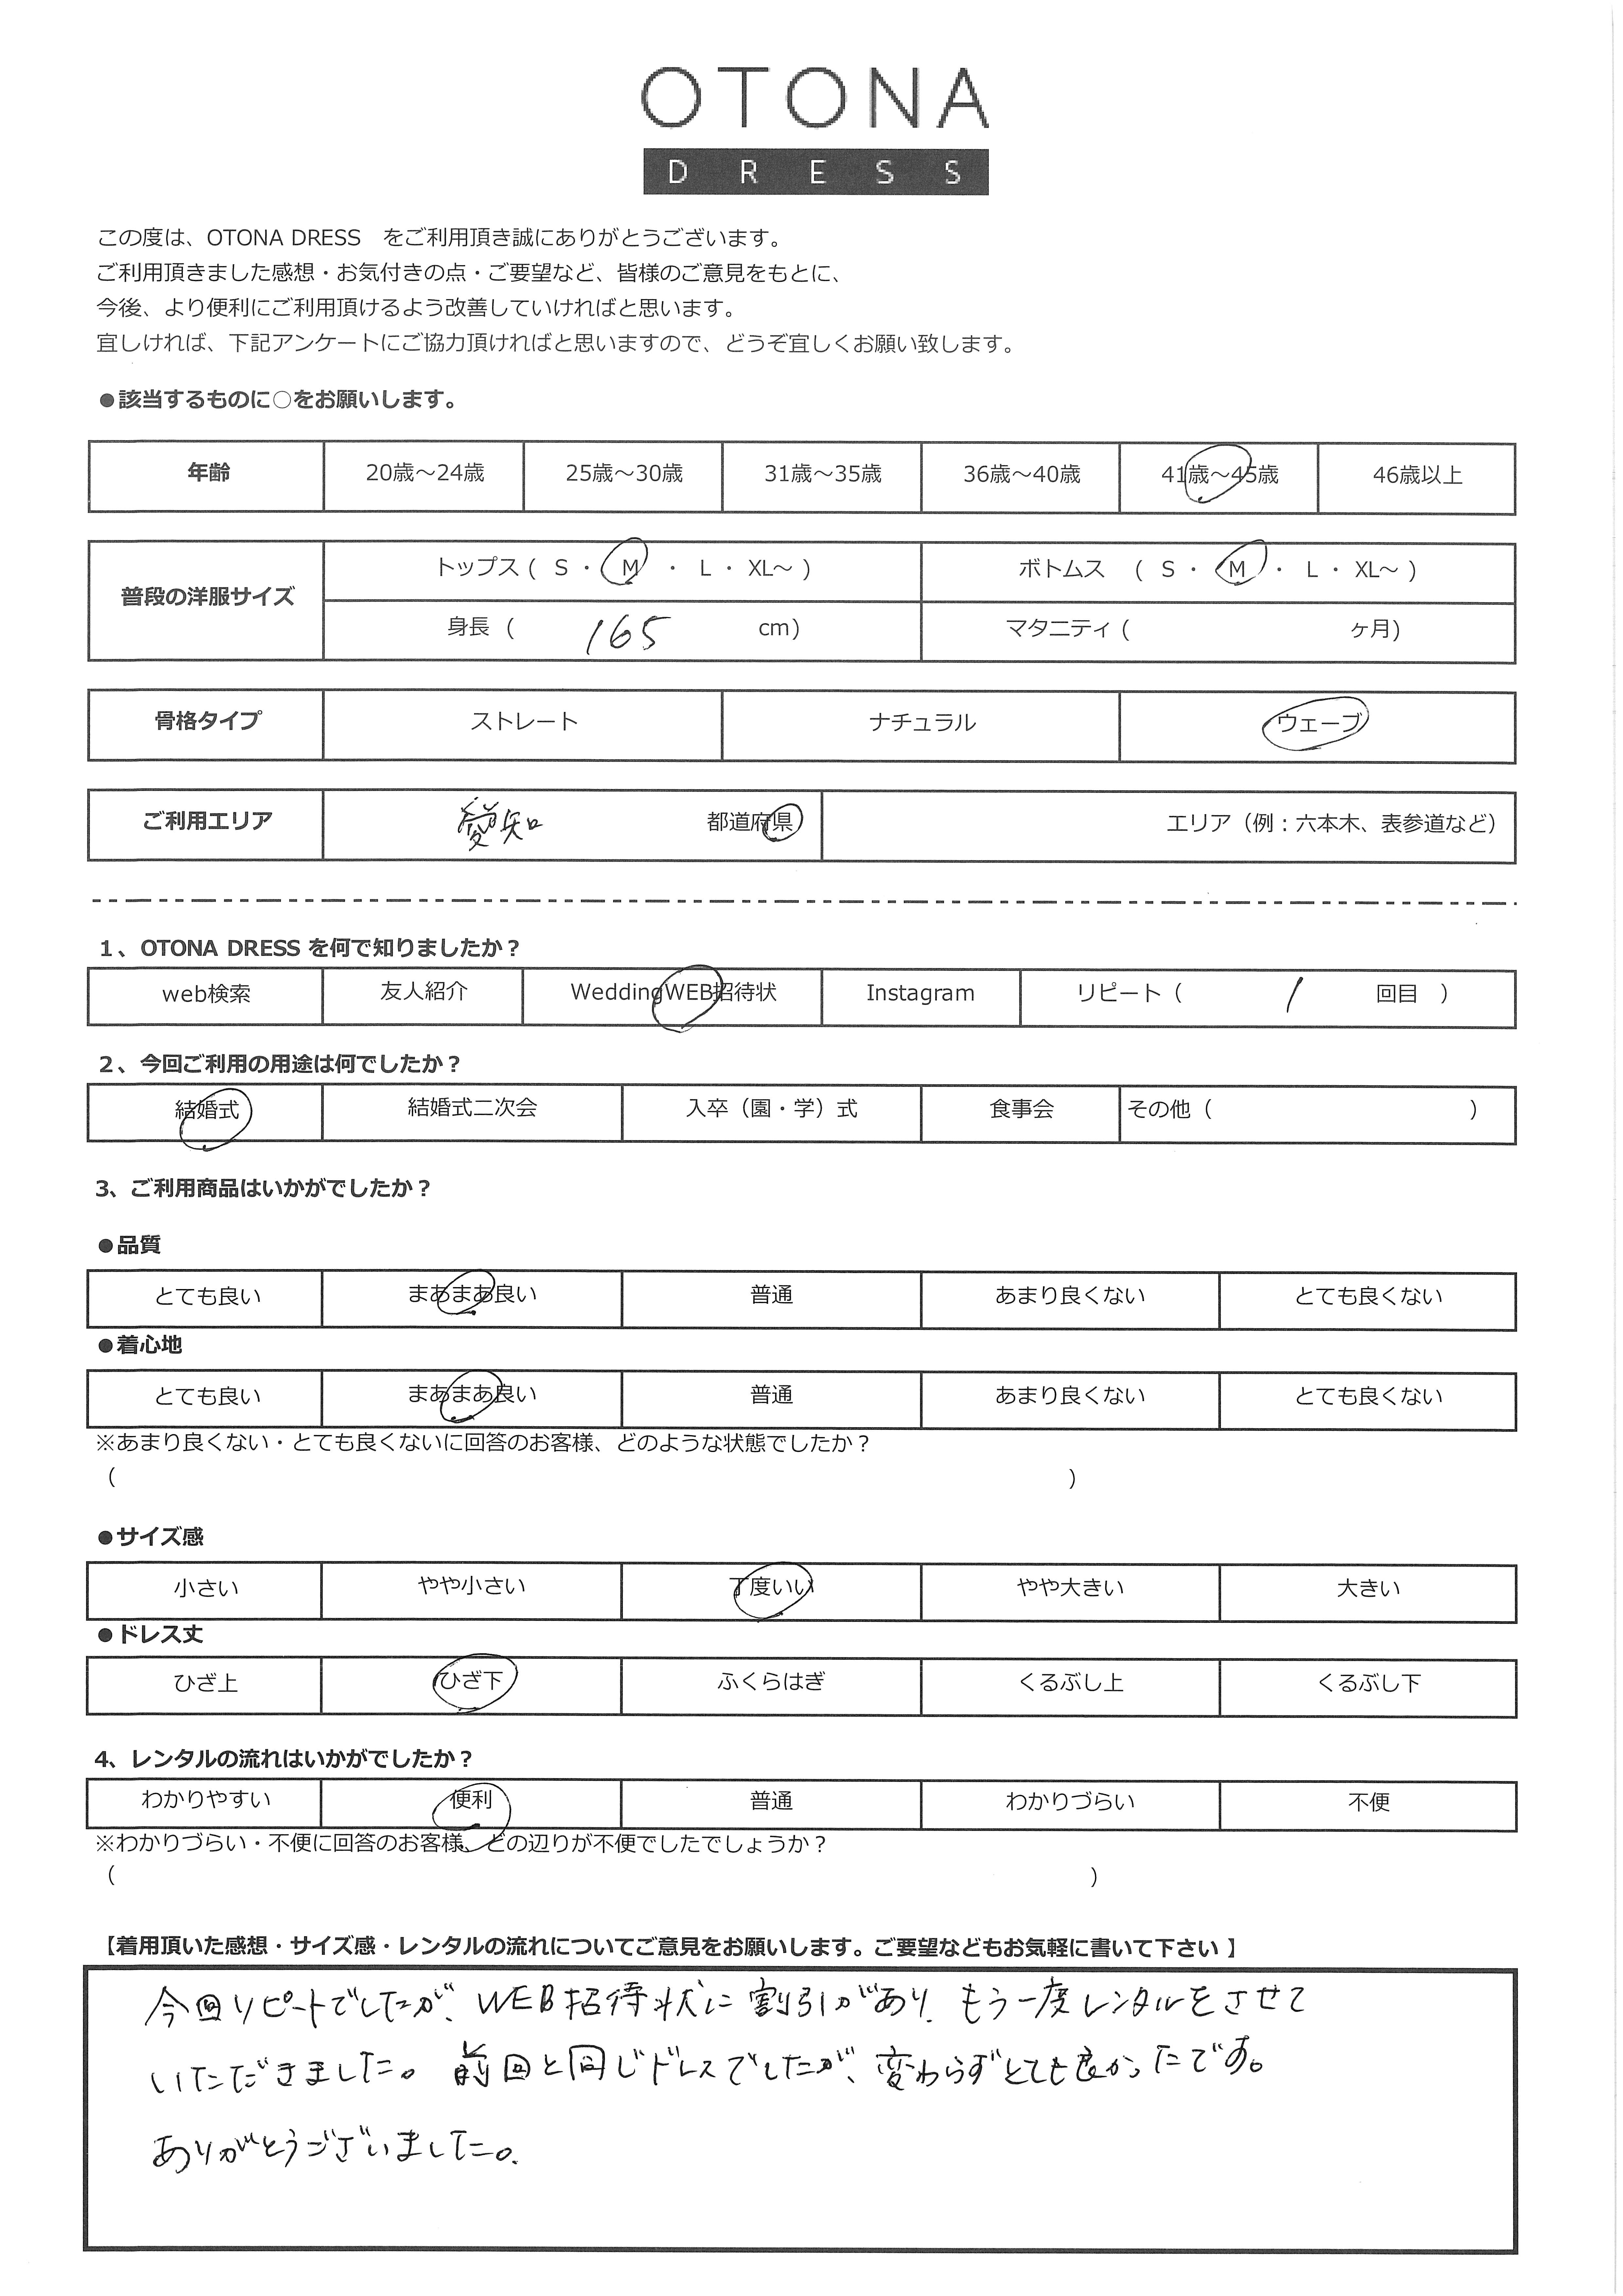 OTONA
DRESS
この度は、OTONA DRESS　をご利用頂き誠にありがとうございます。
ご利用頂きました感想・お気付きの点・ご要望など、皆様のご意見をもとに、
今後、より便利にご利用頂けるよう改善していければと思います。
宜しければ、下記アンケートにご協力頂ければと思いますので、どうぞ宜しくお願い致します。
●該当するものに○をお願いします。
年齢 20歳～24歳 25歳～30歳 31歳～35歳 36歳～40歳 41歳～45歳 46歳以上
普段の洋服サイズ
トップス ( S ・ M ・ L ・ XL～ ) ボトムス ( S ・ M ・ L ・ XL～ )
身長 ( 165 cm) マタニティ ( ヶ月)
骨格タイプ ストレート ナチュラル ウェーブ
ご利用エリア 愛知 都道府県 エリア（例：六本木、表参道など）
1、OTONA DRESS を何で知りましたか？
web検索 友人紹介 WeddingWEB招待状 Instagram リピート（ 1 回目 ）
2、今回ご利用の用途は何でしたか？
結婚式 結婚式二次会 入卒（園・学）式 食事会 その他（ ）
3、ご利用商品はいかがでしたか？
●品質
とても良い まあまあ良い 普通 あまり良くない とても良くない
●着心地
とても良い まあまあ良い 普通 あまり良くない とても良くない
※あまり良くない・とても良くないに回答のお客様、どのような状態でしたか？
（ ）
●サイズ感
小さい やや小さい 丁度いい やや大きい 大きい
●ドレス丈
ひざ上 ひざ下 ふくらはぎ くるぶし上 くるぶし下
4、レンタルの流れはいかがでしたか？
わかりやすい 便利 普通 わかりづらい 不便
※わかりづらい・不便に回答のお客様、どの辺りが不便でしたでしょうか？
（ ）
【着用頂いた感想・サイズ感・レンタルの流れについてご意見をお願いします。ご要望などもお気軽に書いて下さい 】
今回リピートでしたが、WEB招待状に割引があり、もう一度レンタルをさせて
いただきました。前回と同じドレスでしたが、変わらずとても良かったです。
ありがとうございました。